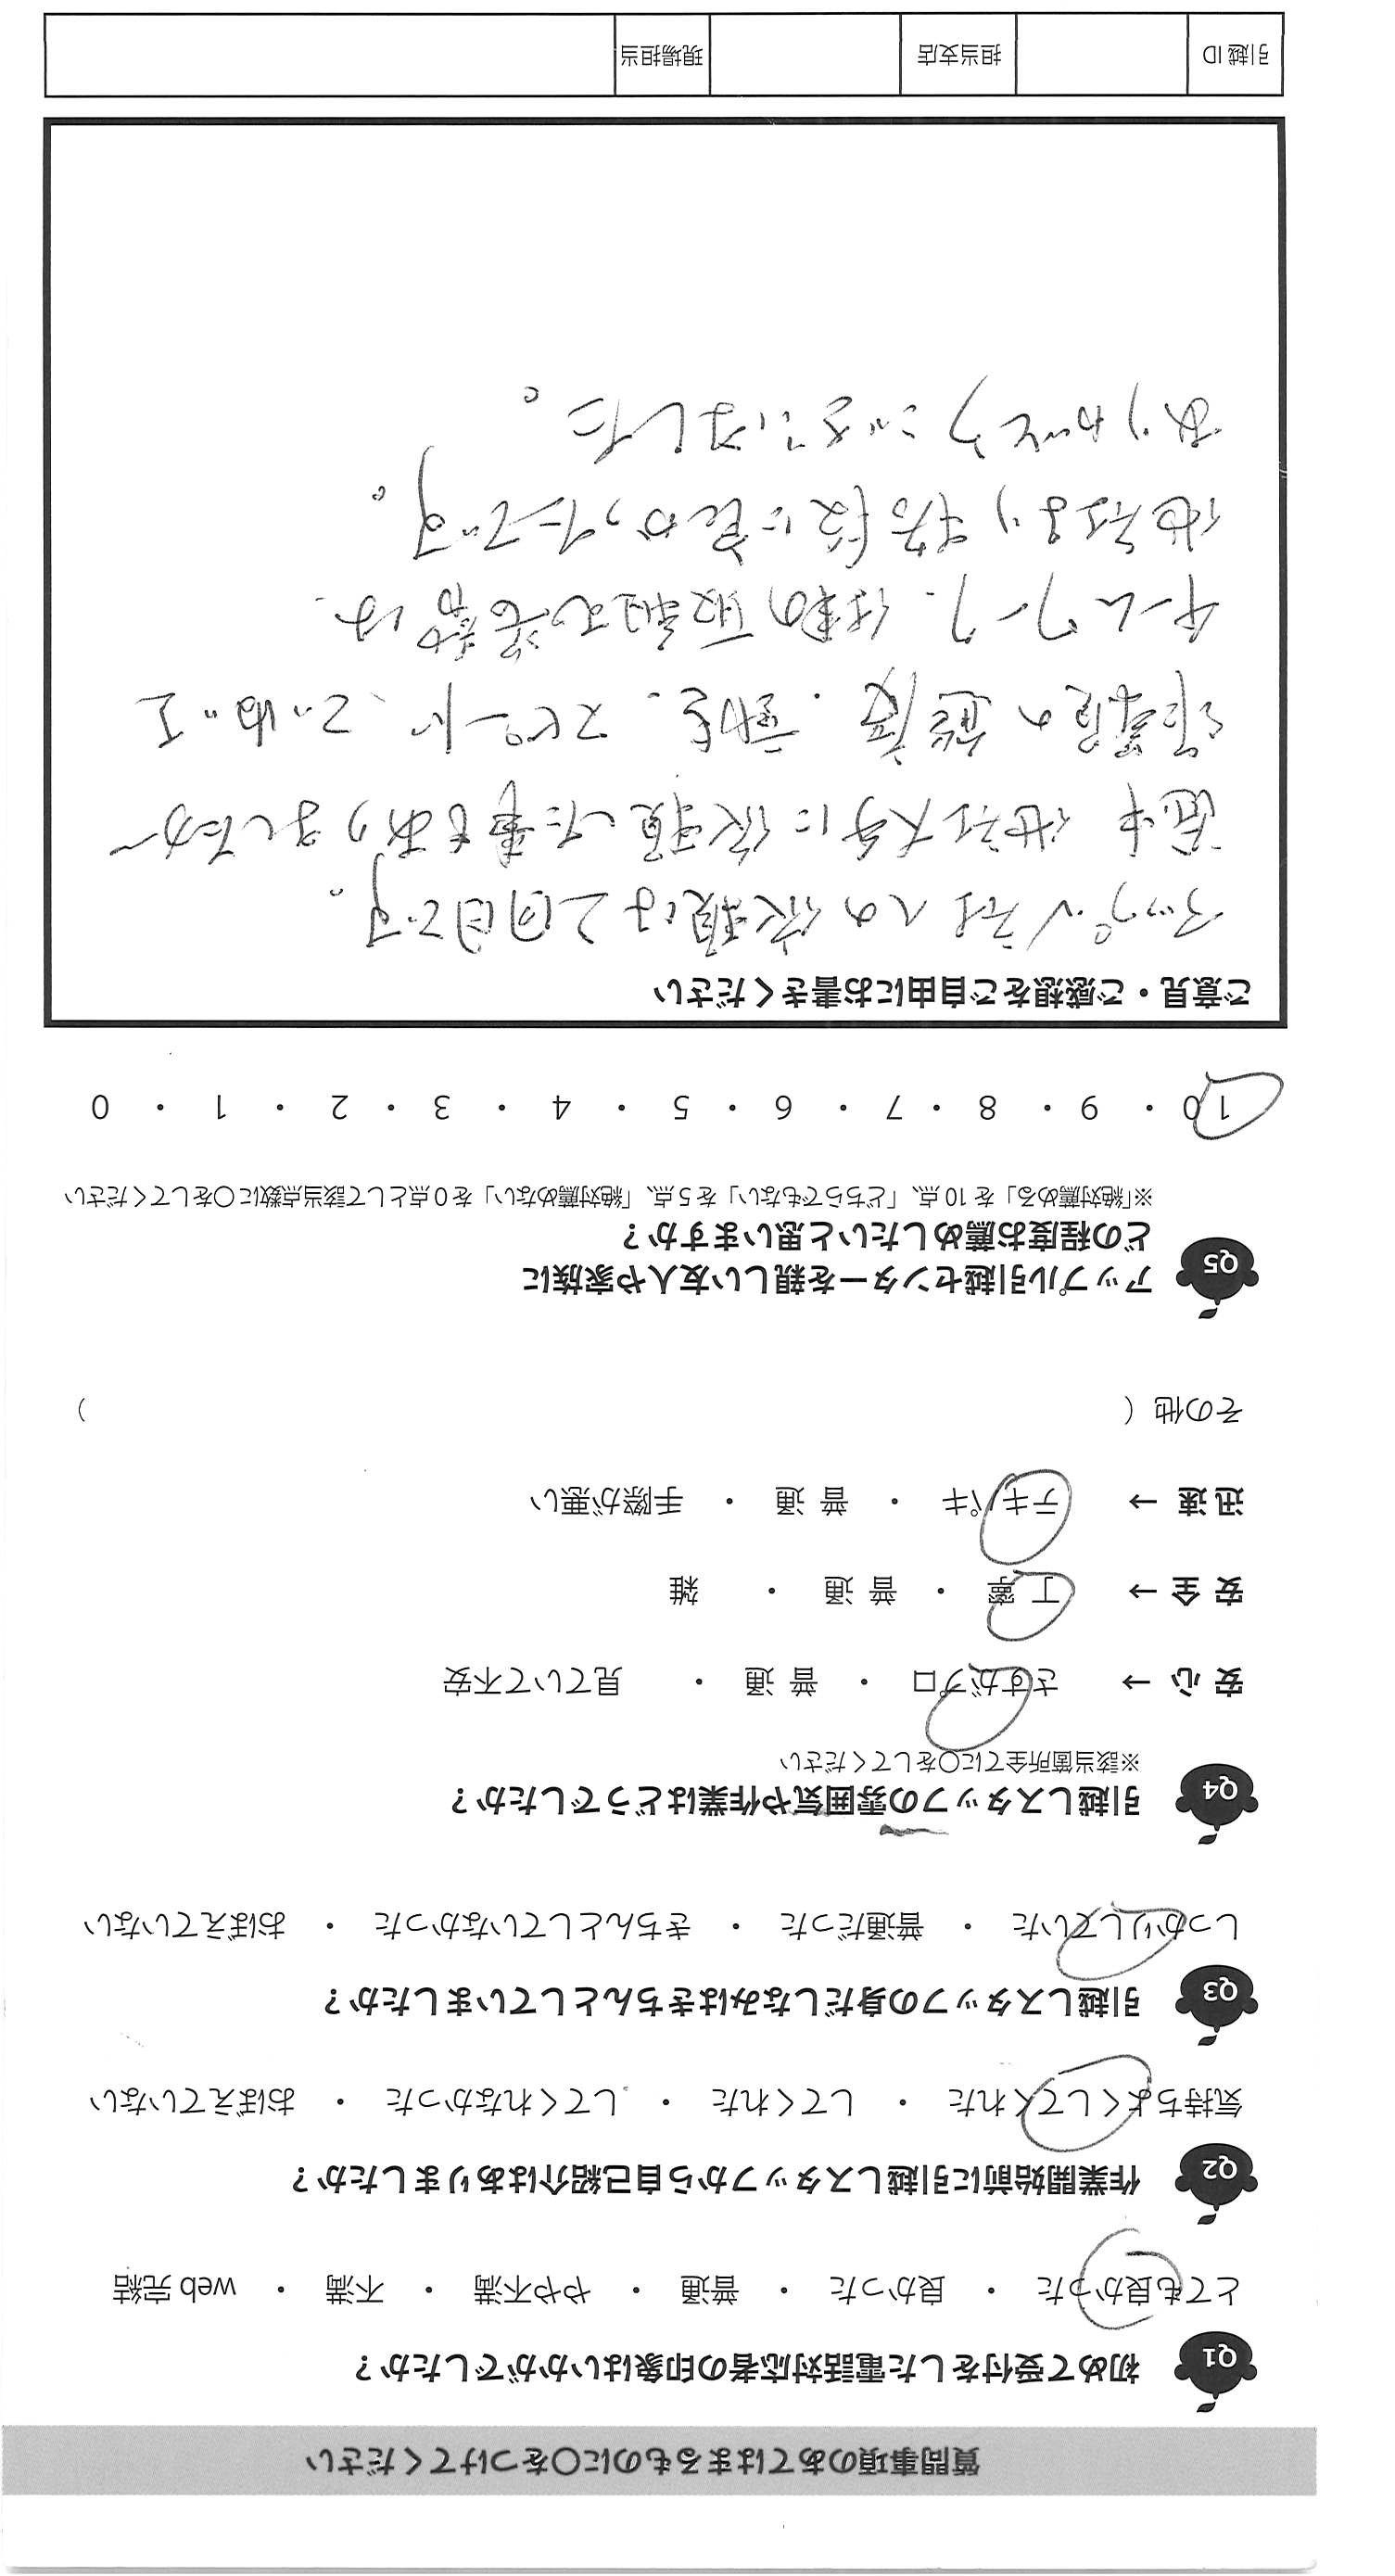 質問事項のあてはまるものに〇をつけてください
Q1 初めて受付をした電話対応者の印象はいかがでしたか？
とても良かった ・ 良かった ・ 普通 ・ やや不満 ・ 不満 ・ web 完結
Q2 作業開始前に引越しスタッフから自己紹介はありましたか？
気持ちよくしてくれた ・ してくれた ・ してくれなかった ・ おぼえていない
Q3 引越しスタッフの身だしなみはきちんとしていましたか？
しっかりしていた ・ 普通だった ・ きちんとしていなかった ・ おぼえていない
Q4 引越しスタッフの雰囲気や作業はどうでしたか？
※該当箇所全てに〇をしてください
安 心 → さすがプロ ・ 普 通 ・ 見ていて不安
安 全 → 丁 寧 ・ 普 通 ・ 雑
迅 速 → テキパキ ・ 普 通 ・ 手際が悪い
その他（ ）
Q5 アップル引越センターを親しい友人や家族に
どの程度お薦めしたいと思いますか？
※「絶対薦める」を 10 点、「どちらでもない」を 5 点、「絶対薦めない」を 0 点として該当点数に〇をしてください
10 ・ 9 ・ 8 ・ 7 ・ 6 ・ 5 ・ 4 ・ 3 ・ 2 ・ 1 ・ 0
ご意見・ご感想をご自由にお書きください
アップル社への依頼は2回目です。
途中 他社大手に依頼した事もありましたが
作業員の態度、動き、スピード、ていねいエ
チームワーク、作業の取組み姿勢は、
他社より格段に良かったです。
ありがとうございました。
引越 ID 担当支店 現場担当